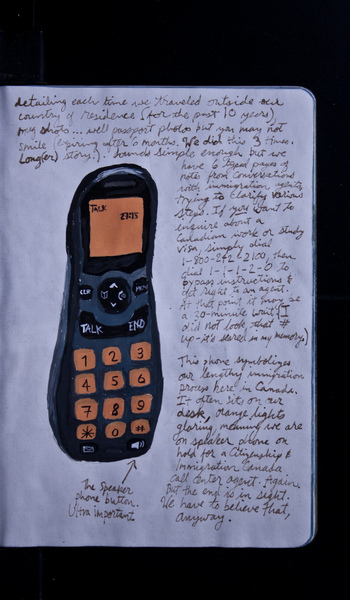 detailing each time we traveled outside our
country of residence (for the past 10 years),
mug shots... well passport photos but you may not
smile (expiring after 6 months. We did this 3 times.
Long(er) story.). Sounds simple enough but we
have 6 typed pages of
notes from conversations
with immigration,
trying to clarify various
steps. If you want to
inquire about a
Canadian work or study
visa, simply dial
1-800-242-2100, then
dial 1-1-1-2-0 to
bypass instructions &
get right to an agent.
At that point it may be
a 20-minute wait. (I
did not look that #
up - it's stored in my memory.)
This phone symbolizes
our lengthy immigration
process here in Canada.
It often sits on our
desk, orange lights
glaring, meaning we are
on speaker phone on
hold for a Citizenship &
Immigration Canada
call center agent. Again.
But the end is in sight.
We have to believe that,
anyway.
TALK
27:15
CLR
MENU
TALK END
1 2 3
4 5 6
7 8 9
* 0 #
The speaker
phone button.
Ultra important.